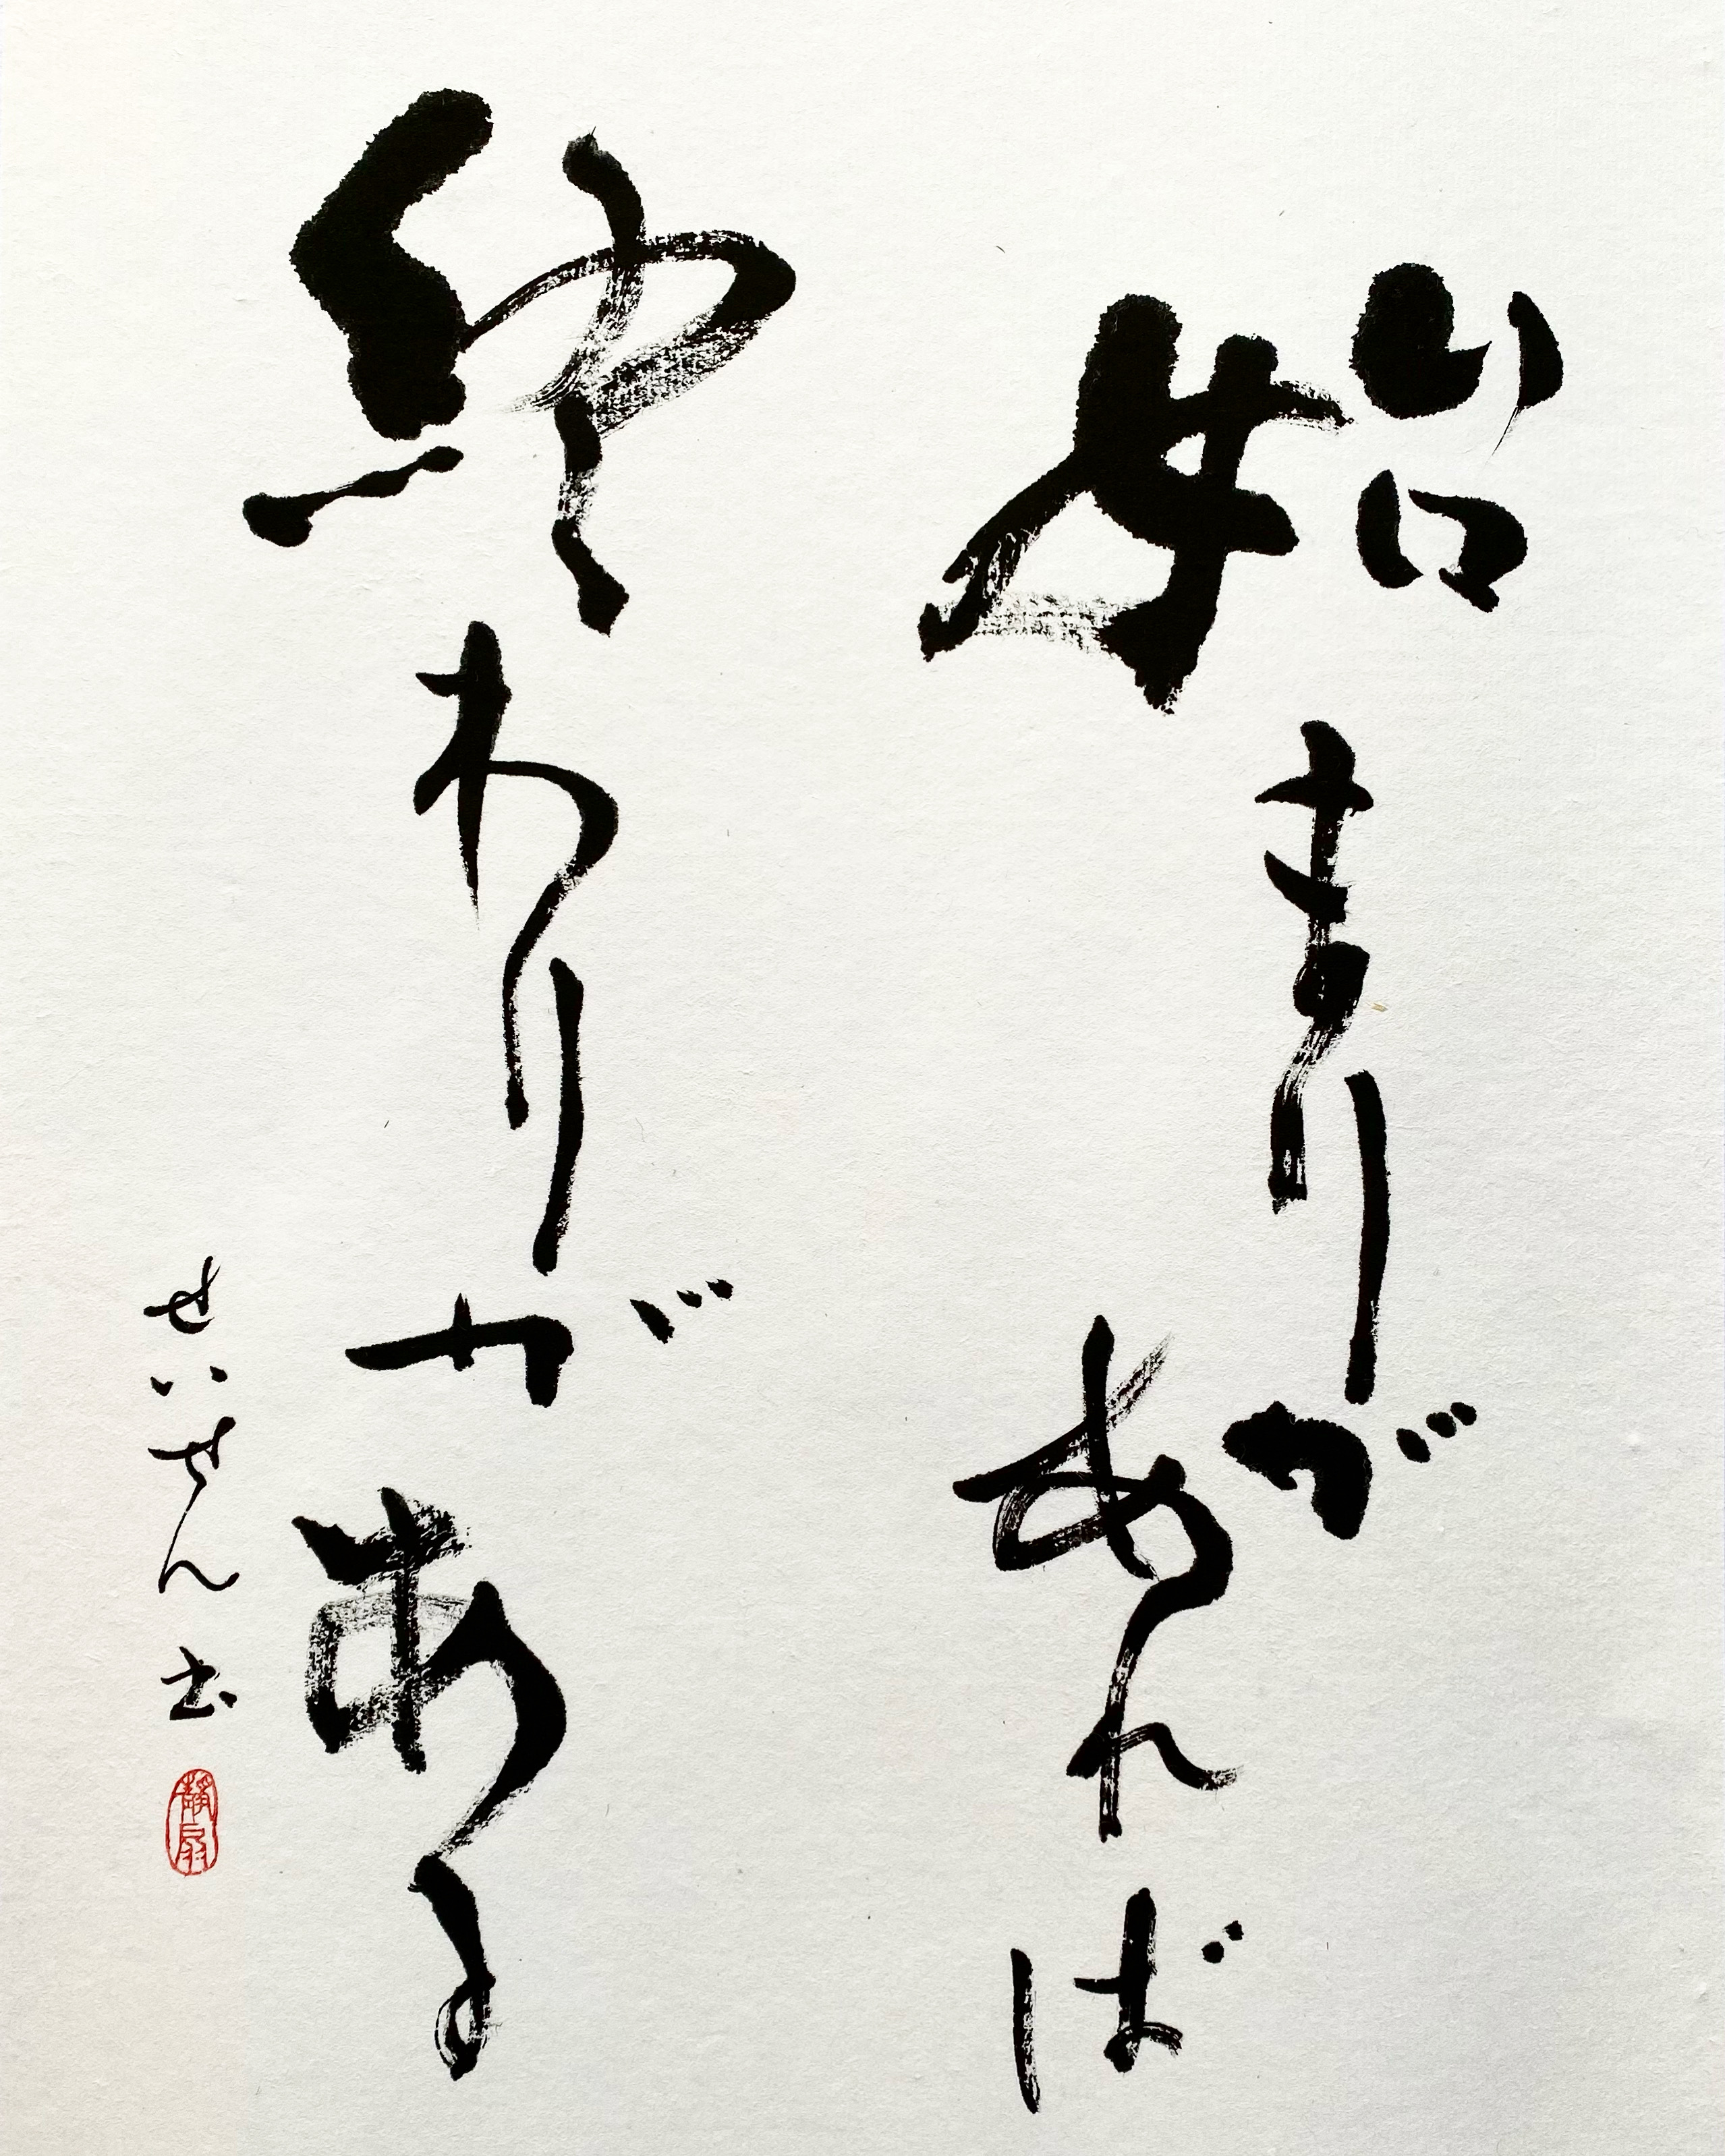 始まりがあれば
終わりがある
せいせん 書
靜扇